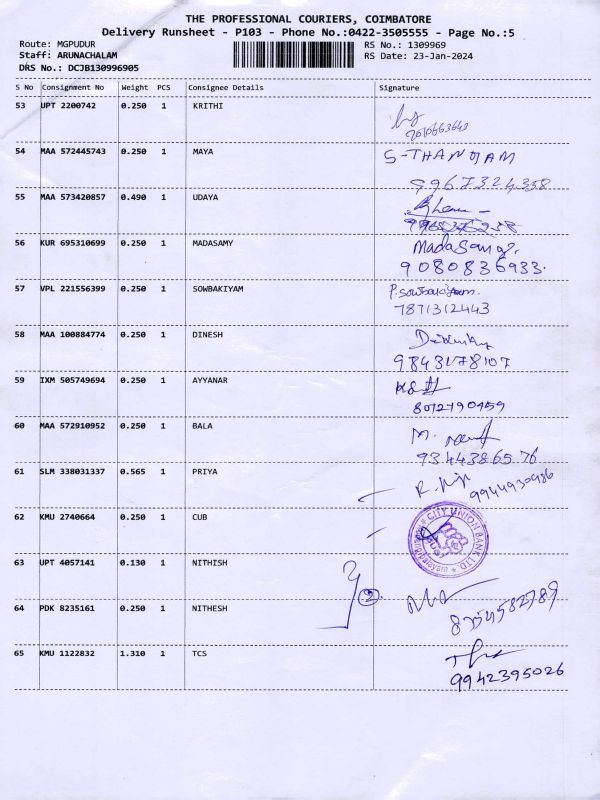 THE PROFESSIONAL COURIERS, COIMBATORE
Delivery Runsheet - P103 - Phone No.:0422-3505555 - Page No.:5
Route: MGPUDUR RS No.: 1309969
Staff: ARUNACHALAM RS Date: 23-Jan-2024
DRS No.: DCJB130996905
S No Consignment No Weight PCS Consignee Details Signature
53 UPT 2200742 0.250 1 KRITHI
54 MAA 572445743 0.250 1 MAYA S-THANGAM
9967324358
55 MAA 573420857 0.490 1 UDAYA
56 KUR 695310699 0.250 1 MADASAMY Madasamy.
9080836933.
57 VPL 221556399 0.250 1 SOWBAKIYAM P.Sowbakiyam.
7871312443
58 MAA 100884774 0.250 1 DINESH
9843178107
59 IXM 505749694 0.250 1 AYYANAR
8012790459
60 MAA 572910952 0.250 1 BALA M.
9344386576
61 SLM 338031337 0.565 1 PRIYA R.
9944930486
62 KMU 2740664 0.250 1 CUB CITY UNION BANK LTD.
63 UPT 4057141 0.130 1 NITHISH
2
64 PDK 8235161 0.250 1 NITHESH
8754582789
65 KMU 1122832 1.310 1 TCS
9942395026